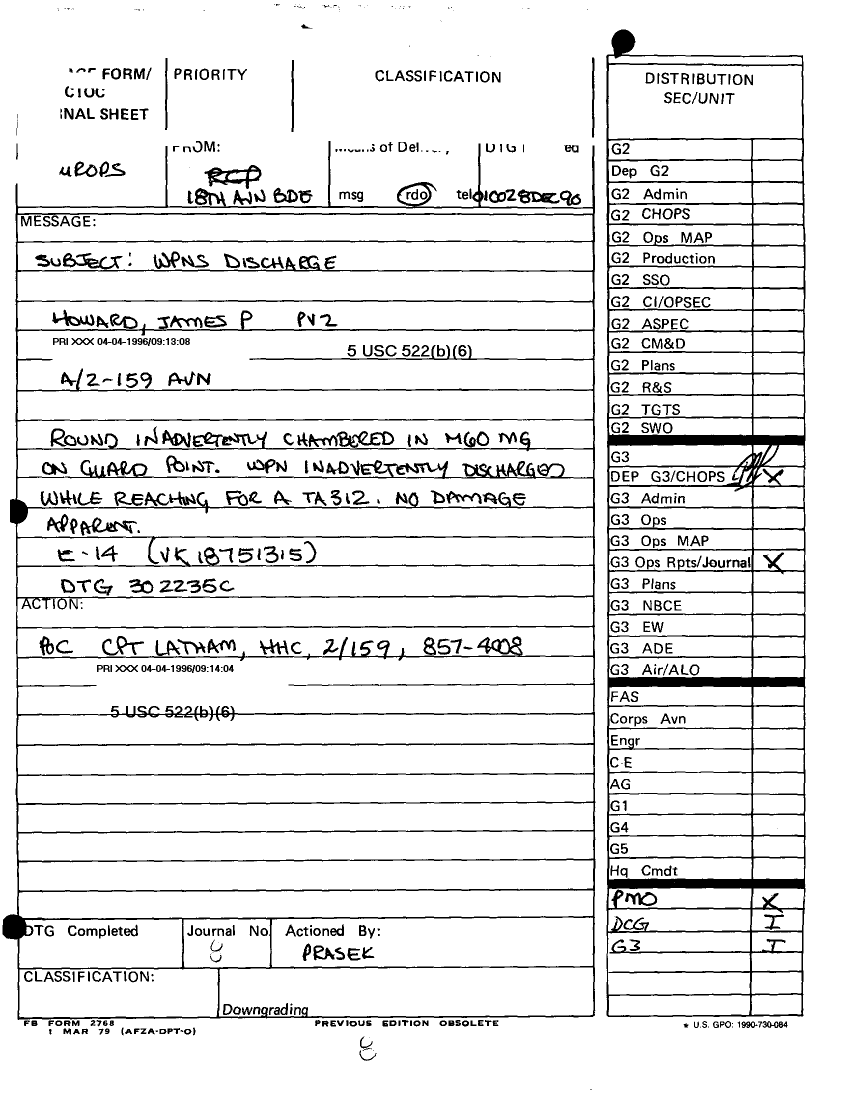 FORM/
INAL SHEET
PRIORITY
CLASSIFICATION
FROM:
RCP
18TH AVN BDE
msg rdo tel 010028DEC90
MESSAGE:
SUBJECT: WPNS DISCHARGE
HOWARD, JAMES P PV2
PRI XXX 04-04-1996/09:13:08
5 USC 522(b)(6)
A/2-159 AVN
ROUND INADVERTENTLY CHAMBERED IN M60 MG
ON GUARD POINT. WPN INADVERTENTLY DISCHARGED
WHILE REACHING FOR A TA312. NO DAMAGE
APPARENT.
E-14 (VK18751315)
DTG 302235C
ACTION:
POC CPT LATHAM, HHC, 2/159, 857-4008
PRI XXX 04-04-1996/09:14:04
5 USC 522(b)(6)
DTG Completed
Journal No
8
Actioned By:
PRASEK
CLASSIFICATION:
Downgrading
FB FORM 2768
1 MAR 79 (AFZA-DPT-O)
PREVIOUS EDITION OBSOLETE
8
DISTRIBUTION
SEC/UNIT
G2
Dep G2
G2 Admin
G2 CHOPS
G2 Ops MAP
G2 Production
G2 SSO
G2 CI/OPSEC
G2 ASPEC
G2 CM&D
G2 Plans
G2 R&S
G2 TGTS
G2 SWO
G3
DEP G3/CHOPS X
G3 Admin
G3 Ops
G3 Ops MAP
G3 Ops Rpts/Journal X
G3 Plans
G3 NBCE
G3 EW
G3 ADE
G3 Air/ALO
FAS
Corps Avn
Engr
C-E
AG
G1
G4
G5
Hq Cmdt
PMO X
DCG I
G3 I
* U.S. GPO: 1990-730-084